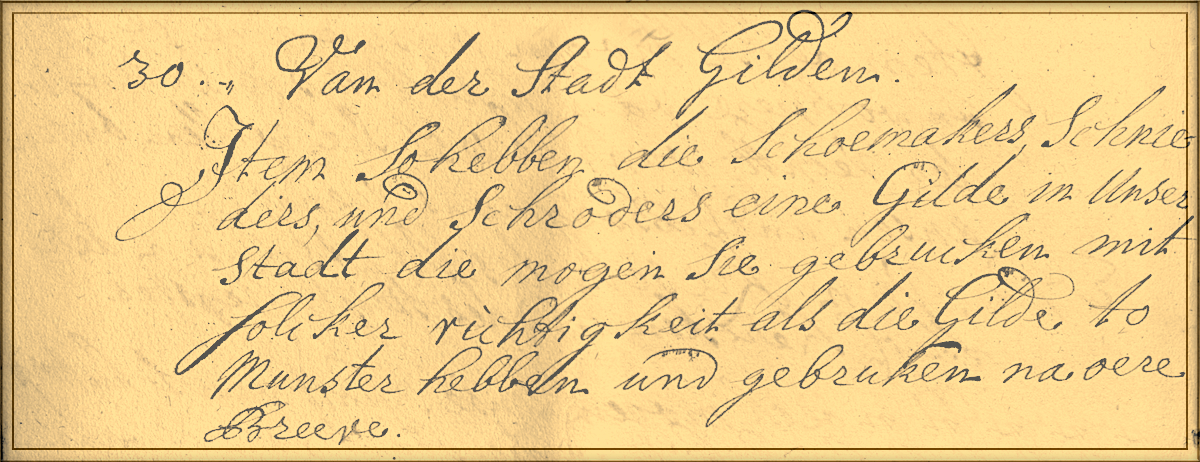 30.„ Van der Stadt Gilden.
Item So hebben die Schoemakers, Schnie
ders, und Schroders eine Gilde in Unser
stadt die mogen Sie gebruicken mit
solicker richtigkeit als die Gilde to
Munster hebben und gebruken na oere
Breeve.